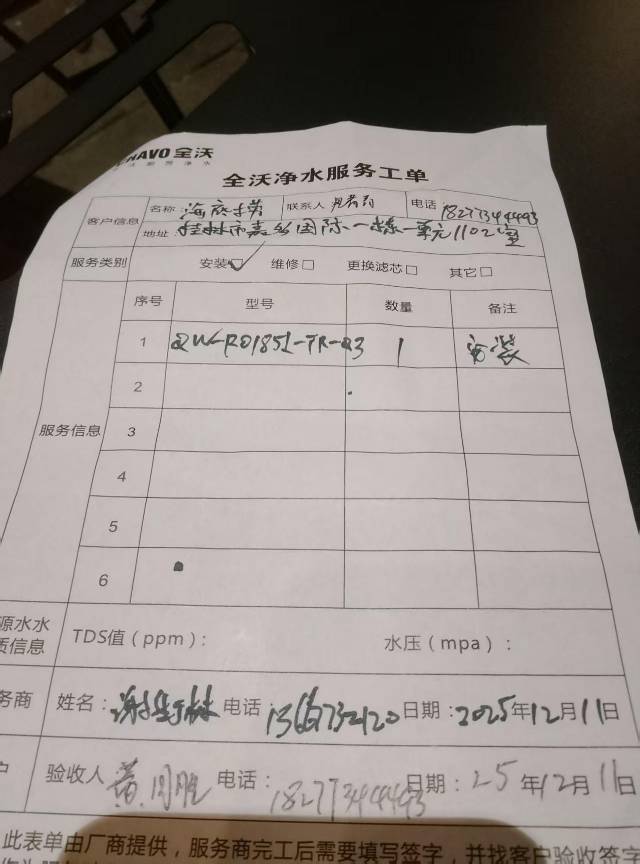 NAVO 全沃
全沃净水服务工单
客户信息 名称 海底捞 联系人 电话 18277344493
地址: 桂林市嘉 国际一栋一单元1102室
服务类别 安装☑ 维修□ 更换滤芯□ 其它□
服务信息 序号 型号 数量 备注
1 QW-RO1851-TR-Q3 1 安装
2
3
4
5
6
源水水
质信息 TDS值（ppm）: 水压（mpa）:
务商 姓名: 谢 林 电话 日期: 2025年12月11日
户 验收人 黄 胜 电话: 18277344493 日期: 25年12月11日
此表单由厂商提供，服务商完工后需要填写签字，并找客户验收签字